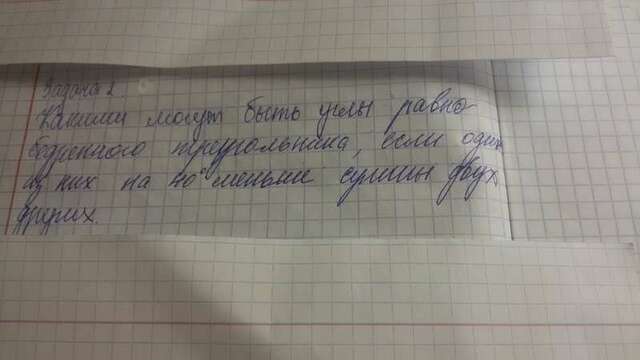 Задача 2
Какими могут быть углы равно-
бедренного треугольника, если один
из них на 40° меньше суммы двух
других.